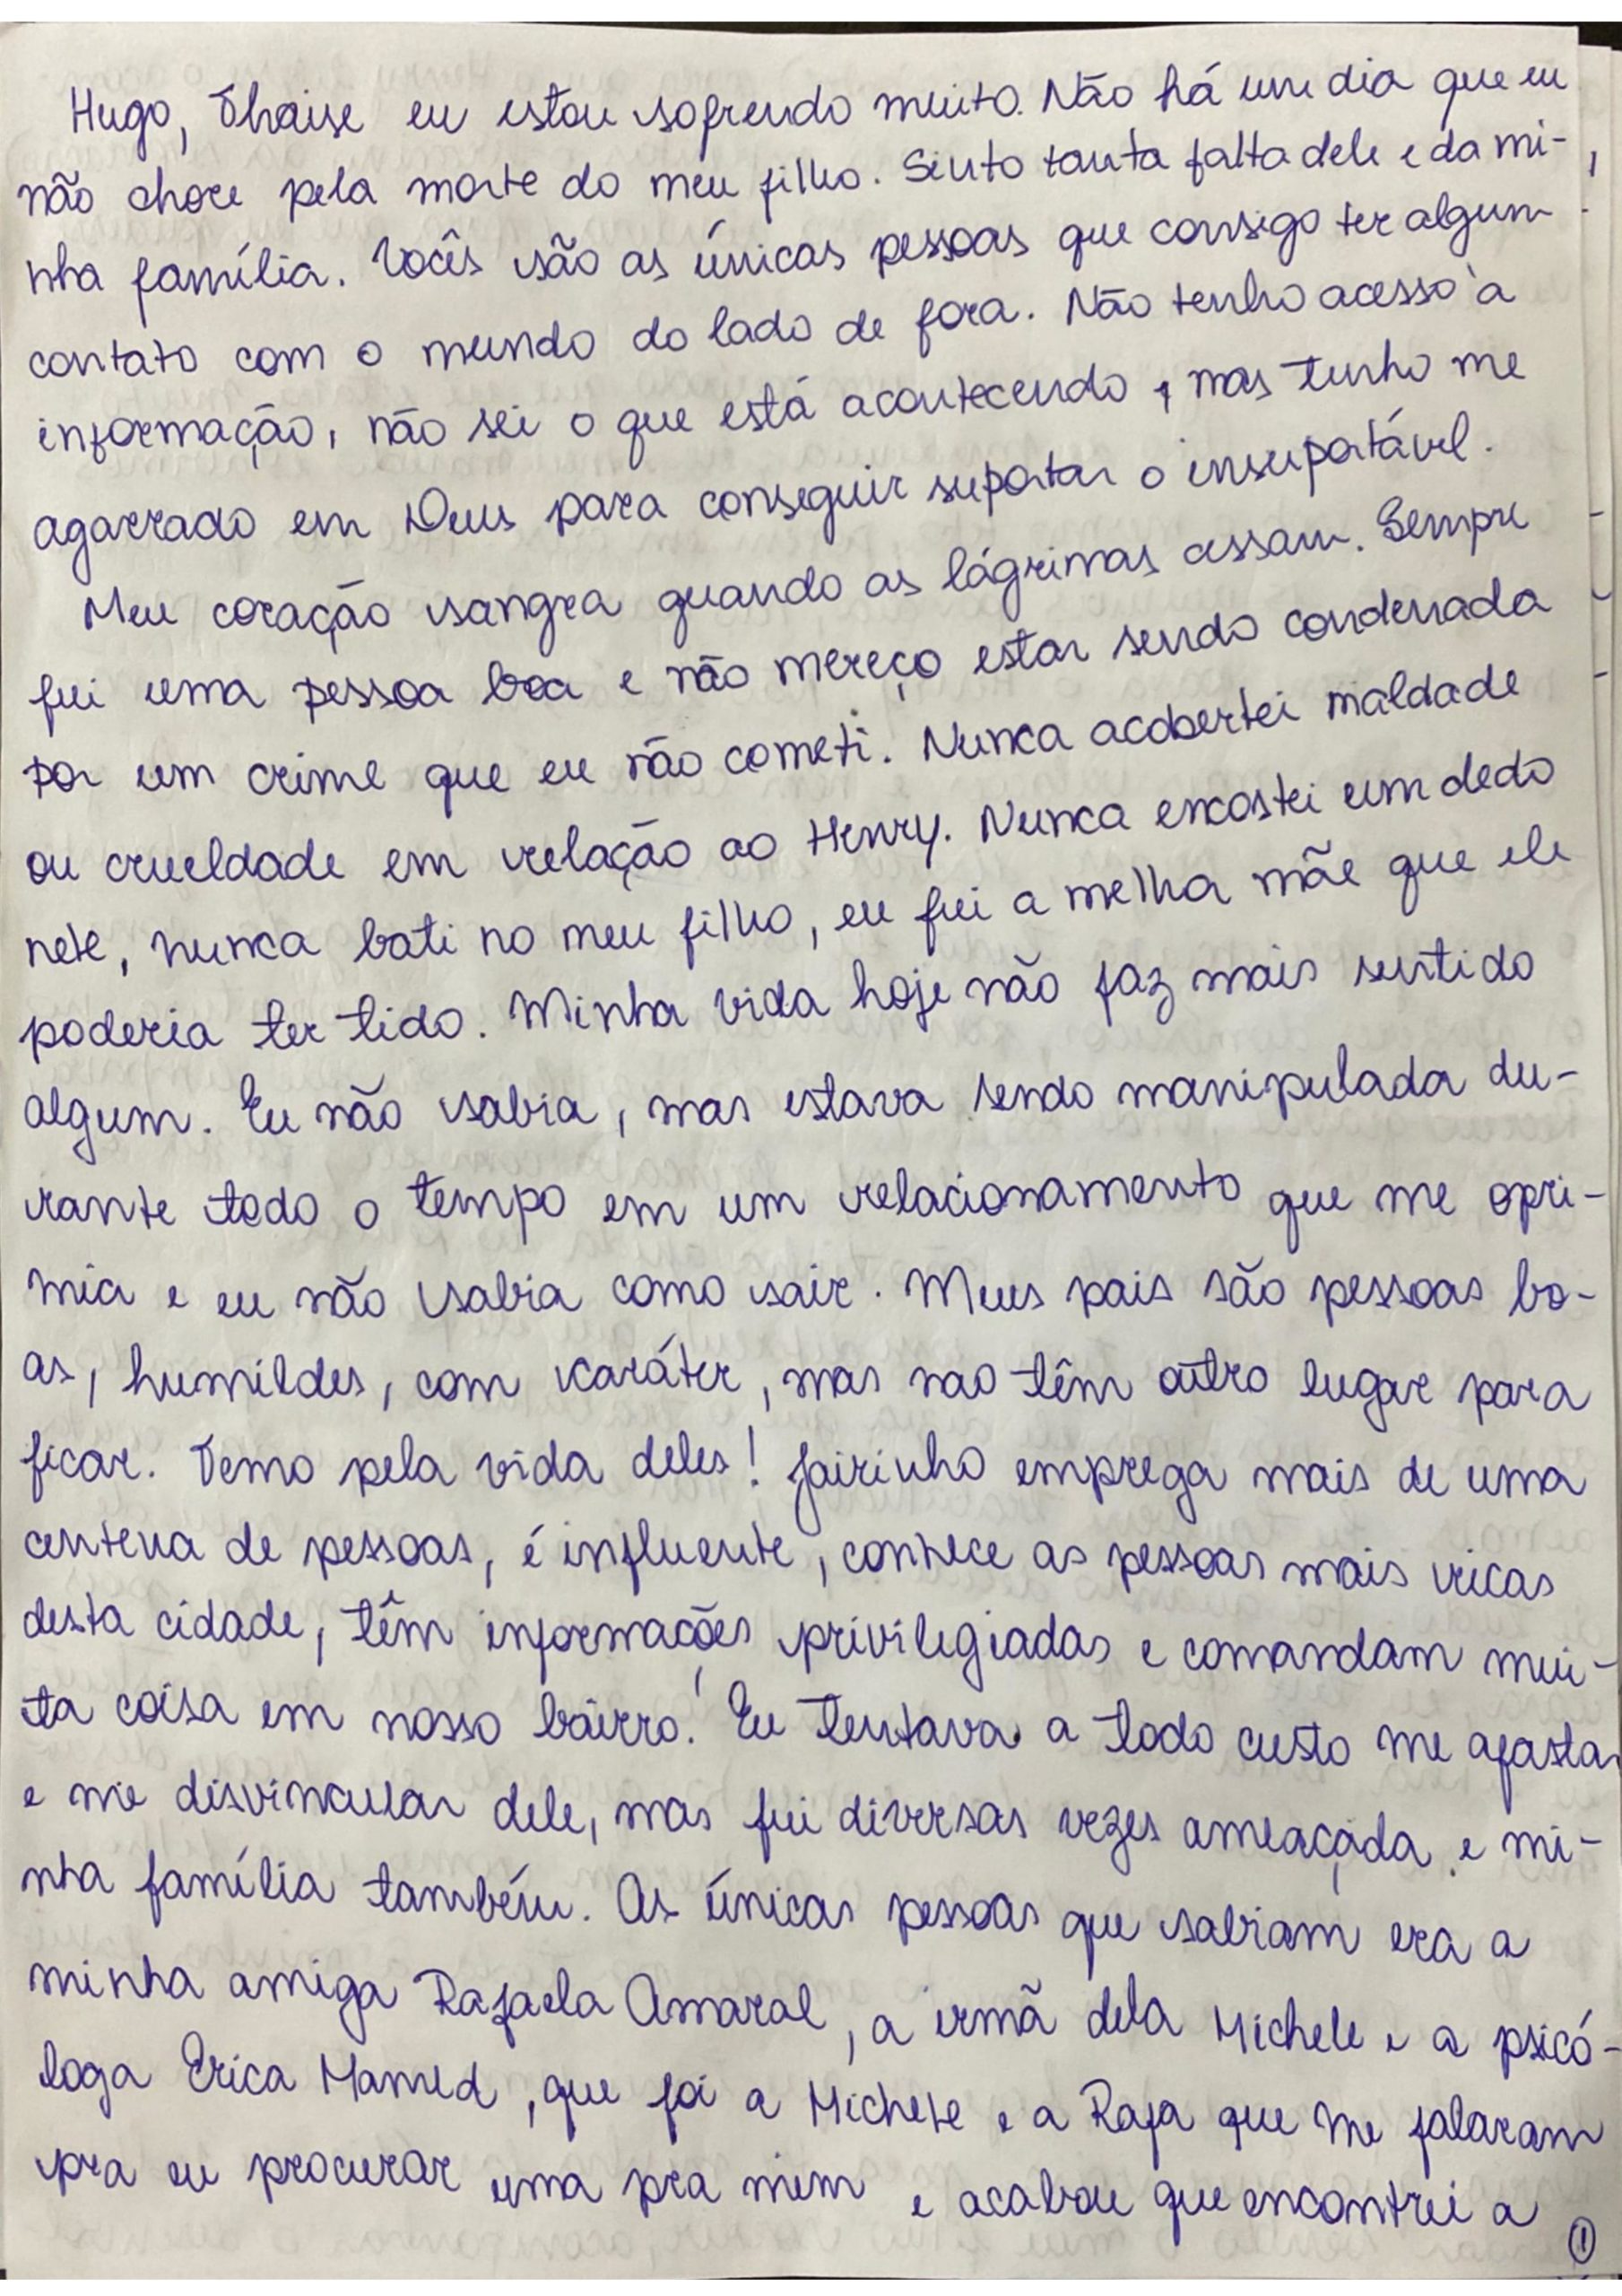 Hugo, Thaise eu estou sofrendo muito. Não há um dia que eu
não chore pela morte do meu filho. Sinto tanta falta dele e da mi-
nha família. Vocês são as únicas pessoas que consigo ter algum
contato com o mundo do lado de fora. Não tenho acesso à
informação, não sei o que está acontecendo, mas tenho me
agarrado em Deus para conseguir suportar o insuportável.
Meu coração sangra quando as lágrimas cessam. Sempre
fui uma pessoa boa e não mereço estar sendo condenada
por um crime que eu não cometi. Nunca acobertei maldade
ou crueldade em relação ao Henry. Nunca encostei um dedo
nele, nunca bati no meu filho, eu fui a melhor mãe que ele
poderia ter tido. Minha vida hoje não faz mais sentido
algum. Eu não sabia, mas estava sendo manipulada du-
rante todo o tempo em um relacionamento que me opri-
mia e eu não sabia como sair. Meus pais são pessoas bo-
as, humildes, com caráter, mas nao têm outro lugar para
ficar. Temo pela vida deles! Jairinho emprega mais de uma
centena de pessoas, é influente, conhece as pessoas mais ricas
desta cidade, têm informações privilegiadas e comandam mui-
ta coisa em nosso bairro! Eu tentava a todo custo me afastar
e me disvincular dele, mas fui diversas vezes ameaçada e mi-
nha família também. As únicas pessoas que sabiam era a
minha amiga Rafaela Amaral, a irmã dela Michele e a psicó-
loga Erica Mamed, que foi a Michele e a Rafa que me falaram
pra eu procurar uma pra mim e acabou que encontrei a
1